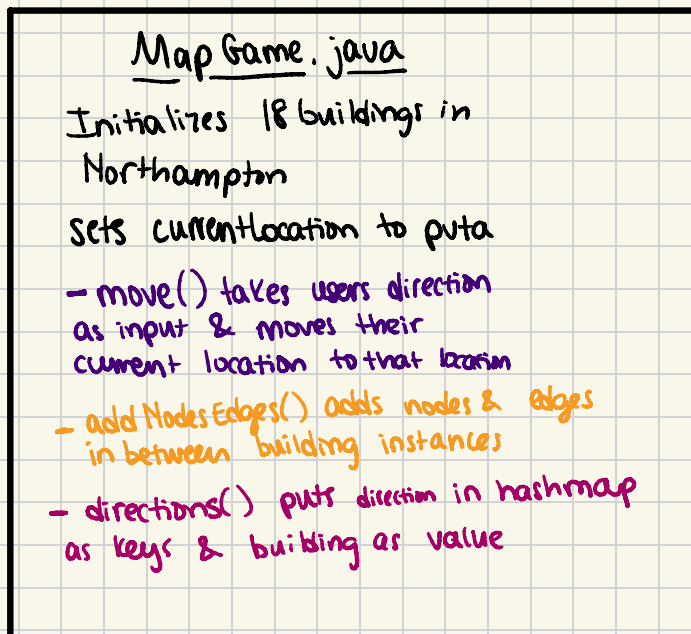 Map Game.java
Initializes 18 buildings in
Northampton
sets currentLocation to puta
- move() takes users direction
as input & moves their
current location to that location
- addNodesEdges() adds nodes & edges
in between building instances
- directions() puts direction in hashmap
as keys & building as value